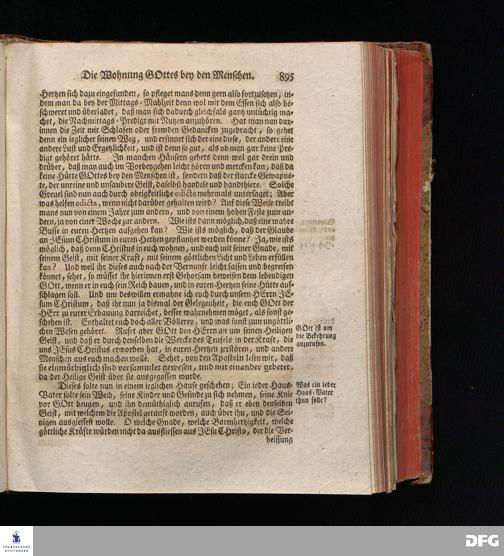 Die Wohnung GOttes bey den Menschen. 895
Hertzen sich dazu eingefunden, so pfleget mans denn gern also fortzusetzen, in-
dem man da bey der Mittags-Mahlzeit denn wol mit dem Essen sich also be-
schweret und überladet, daß man sich dadurch gleichfals gantz untüchtig ma-
chet, die Nachmittags-Predigt mit Nutzen anzuhören. Hat man nun dar-
innen die Zeit mit Schlafen oder fremden Gedancken zugebracht, so gehet
denn ein ieglicher seinen Weg, und ersinnet sich der eine diese, der andere eine
andere Lust und Ergetzlichkeit, und ist denn so gut, als ob man gar keine Pre-
digt gehöret hätte. In manchen Häusern gehets denn wol gar drein und
drüber, daß man auch im Vorbeygehen leicht hören und mercken kan, daß da
keine Hütte GOttes bey den Menschen ist, sondern daß der starcke Gewapne-
te, der unreine und unsaubere Geist, daselbst handele und handthiere. Solche
Greuel sind nun auch durch obrigkeitliche edicta mehrmals untersaget; Aber
was helfen edicta, wenn nicht darüber gehalten wird? Auf diese Weise treibt
mans nun von einem Jahre zum andern, und von einem hohen Feste zum an-
dern, ja von einer Woche zur andern. Wie ists dann möglich, daß eine wahre
Busse in euren Hertzen aufgehen kan? Wie ists möglich, daß der Glaube
an JEsum Christum in euren Hertzen gepflantzet werden könne? Ja, wie ists
möglich, daß denn Christus in euch wohnen, und euch mit seiner Gnade, mit
seinem Geist, mit seiner Kraft, mit seinem göttlichen Licht und Leben erfüllen
kan? Und weil ihr dieses auch nach der Vernunft leicht fassen und begreifen
könnet, sehet, so müsset ihr hierinnen erst Gehorsam beweisen dem lebendigen
GOtt, wenn er in euch sein Reich bauen, und in euren Hertzen seine Hütte auf-
schlagen soll. Und um deswillen ermahne ich euch durch unsern HErrn JE-
sum Christum, daß ihr nun ja dismal der Gelegenheit, die euch GOtt der
HErr zu eurer Erbauung darreichet, besser wahrnehmen möget, als sonst ge-
schehen ist. Enthaltet euch doch aller Völlerey, und was sonst zum ungöttli-
chen Wesen gehöret. Rufet aber GOtt den HErrn an um seinen Heiligen
Geist, und daß er durch denselben die Wercke des Teufels in der Kraft, die
uns JEsus Christus erworben hat, in euren Hertzen zerstören, und andere
Menschen aus euch machen wolle. Sehet, von den Aposteln lesen wir, daß
sie einmüthiglich sind versammlet gewesen, und mit einander gebetet,
da der Heilige Geist über sie ausgegossen wurde.
GOtt ist um
die Bekehrung
anzurufen.
Dieses solte nun in einem ieglichen Hause geschehen; Ein ieder Haus-
Vater solte sein Weib, seine Kinder und Gesinde zu sich nehmen, seine Knie
vor GOtt beugen, und ihn demüthiglich anrufen, daß er eben denselben
Geist, mit welchem die Apostel getauft worden, auch über ihn, und die Sei-
nigen ausgiessen wolle. O welche Gnade, welche Barmhertzigkeit, welche
göttliche Kräfte würden nicht da ausfliessen aus JEsu Christo, der die Ver-
heissung
Was ein ieder
Haus-Vater
thun solle?
FRANCKESCHE
STIFTUNGEN
DFG